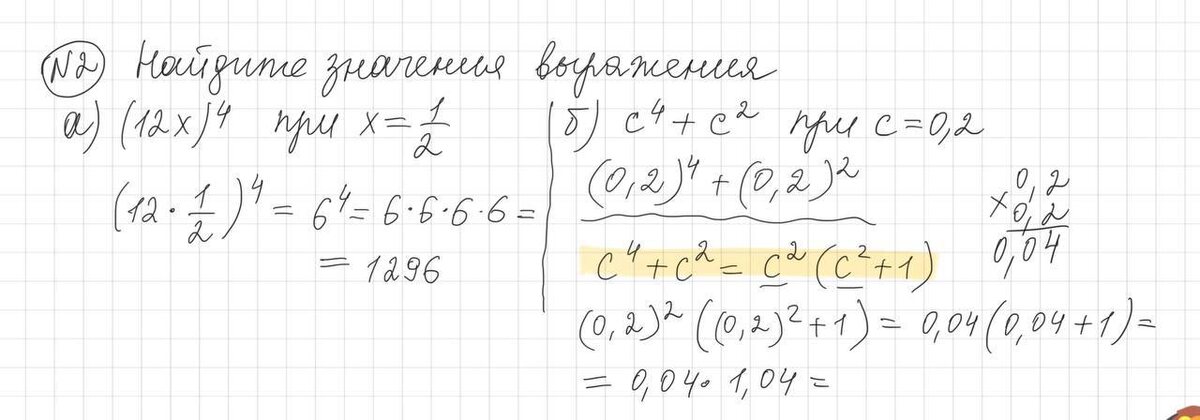 №2 Найдите значения выражения
а) (12x)⁴ при x = 1/2
(12 · 1/2)⁴ = 6⁴ = 6·6·6·6 =
= 1296
б) c⁴ + c² при c = 0,2
(0,2)⁴ + (0,2)²
× 0,2
0,2
0,04
c⁴ + c² = c² (c² + 1)
(0,2)² ((0,2)² + 1) = 0,04 (0,04 + 1) =
= 0,04 · 1,04 =